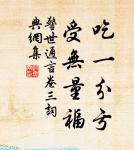 吃一分亏
受無量福
警世通言卷三詞
典網集